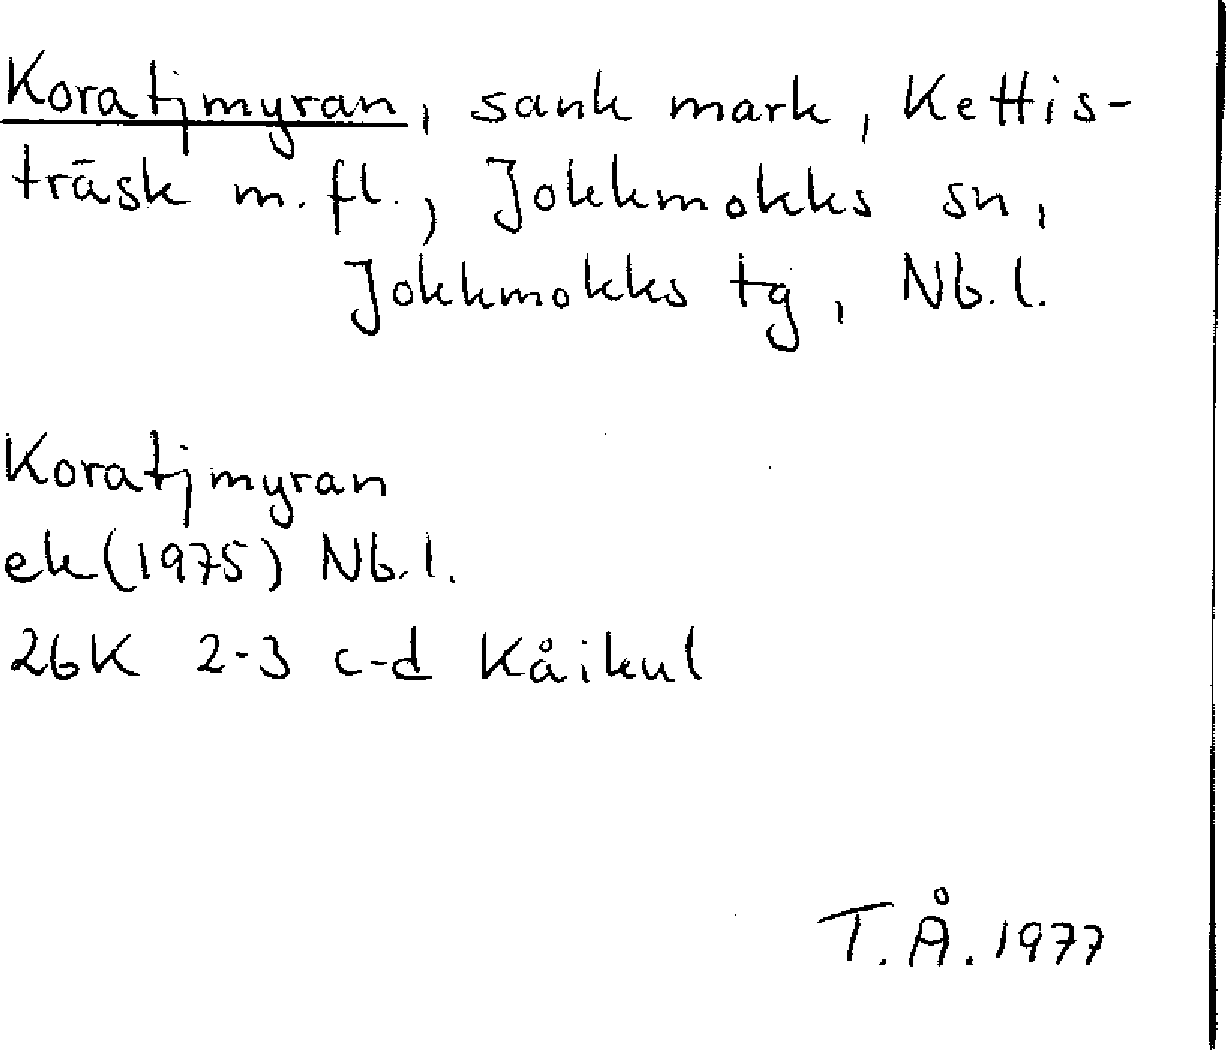 Koratjmyran, sank mark, Kettis-
träsk m. fl., Jokkmokks sn,
Jokkmokks tg, Nb. l.
Koratjmyran
ek (1975) Nb. l.
26K 2-3 c-d Kåikul
T. Å. 1977